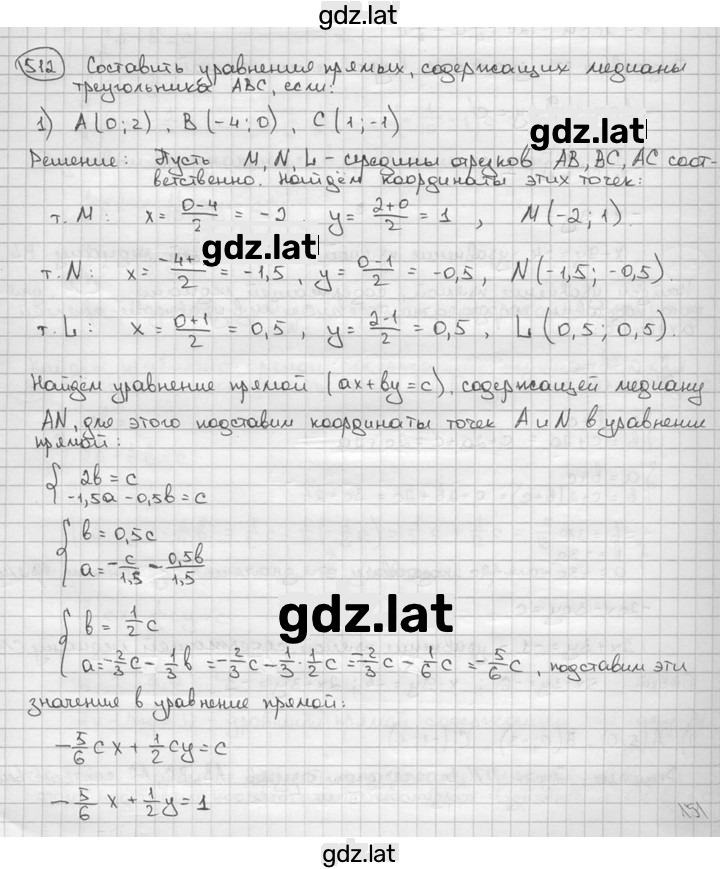 gdz.lat
512 Составить уравнения прямых, содержащих медианы
треугольника ABC, если:
1) A(0;2), B(-4;0), C(1;-1)
gdz.lat
Решение: Пусть M, N, L - середины отрезков AB, BC, AC соот-
ветственно. Найдём координаты этих точек:
т. M: x = (0-4)/2 = -2. y = (2+0)/2 = 1, M(-2; 1).
gdz.lat
т. N: x = (-4+)/2 = -1,5, y = (0-1)/2 = -0,5, N(-1,5; -0,5).
т. L: x = (0+1)/2 = 0,5, y = (2-1)/2 = 0,5, L(0,5; 0,5).
Найдём уравнение прямой (ax+by=c), содержащей медиану
AN, для этого подставим координаты точек A и N в уравнение
прямой:
{ 2b = c
-1,5a - 0,5b = c
{ b = 0,5c
a = -c/1,5 - 0,5b/1,5
gdz.lat
{ b = 1/2 c
a = -2/3 c - 1/3 b = -2/3 c - 1/3 · 1/2 c = -2/3 c - 1/6 c = -5/6 c, подставим эти
значение в уравнение прямой:
-5/6 cx + 1/2 cy = c
-5/6 x + 1/2 y = 1
151
gdz.lat